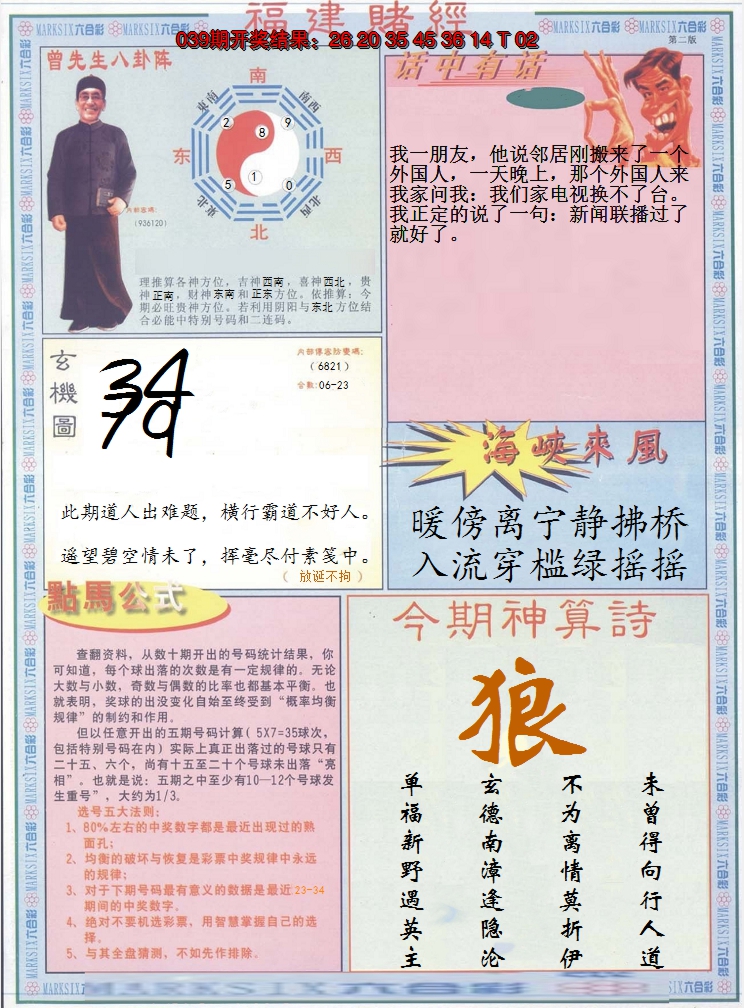 福建賭經
039期开奖结果：26 20 35 45 36 14 T 02
MARKSIX六合彩
第二版
曾先生八卦阵
南
東南
南西
东
西
東北
北西
北
2
8
9
5
1
0
内部密碼:
(936120)
理推算各神方位，吉神西南，喜神西北，贵
神正南，财神东南和正东方位。依推算：今
期必旺贵神方位。若利用阴阳与东北方位结
合必能中特别号码和二连码。
话中有话
我一朋友，他说邻居刚搬来了一个
外国人，一天晚上，那个外国人来
我家问我：我们家电视换不了台。
我正定的说了一句：新闻联播过了
就好了。
玄機圖
34
79
(6821)
合数:06-23
此期道人出难题，横行霸道不好人。
遥望碧空情未了，挥毫尽付素笺中。
（ 放诞不拘 ）
海峡來風
暖傍离宁静拂桥
入流穿槛绿摇摇
點馬公式
查翻资料，从数十期开出的号码统计结果，你
可知道，每个球出落的次数是有一定规律的。无论
大数与小数，奇数与偶数的比率也都基本平衡。也
就表明，奖球的出没变化自始至终受到“概率均衡
规律”的制约和作用。
但以任意开出的五期号码计算( 5X7=35球次，
包括特别号码在内) 实际上真正出落过的号球只有
二十五、六个，尚有十五至二十个号球未出落“亮
相”。也就是说：五期之中至少有10—12个号球发
生重号”，大约为1/3。
选号五大法则：
1、80%左右的中奖数字都是最近出现过的熟
面孔；
2、均衡的破坏与恢复是彩票中奖规律中永远
的规律；
3、对于下期号码最有意义的数据是最近 23-34
期间的中奖数字。
4、绝对不要机选彩票，用智慧掌握自己的选
择。
5、与其全盘猜测，不如先作排除。
今期神算詩
狼
未曾得向行人道
不为离情莫折伊
玄德南漳逢隐沦
单福新野遇英主